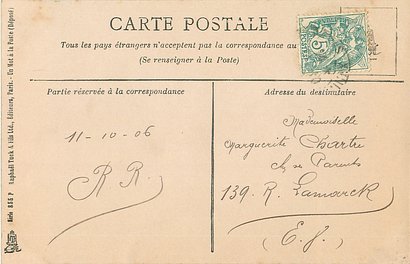 CARTE POSTALE
Tous les pays étrangers n'acceptent pas la correspondance au
(Se renseigner à la Poste)
Partie réservée à la correspondance
Adresse du destinataire
11-10-06
R R.
Mademoiselle
Marguerite Chartre
ch ses Parents
139. R. Lamarck
(E. J.)
5
Série 855 P Raphaël Tuck & fils Ltd., Éditeurs, Paris. - Un Mot à la Poste (Déposé)